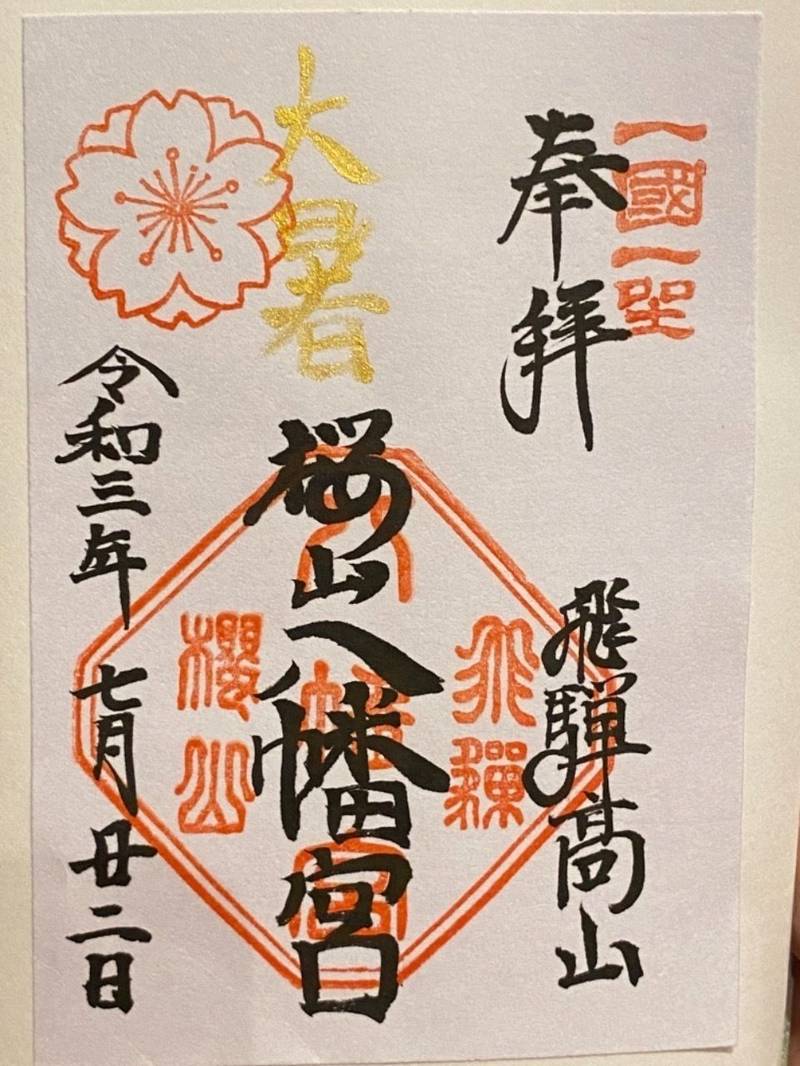 一國一
奉拝
飛騨高山
大暑
桜山八幡宮
飛驒
八幡宮
櫻山
令和三年 七月廿二日